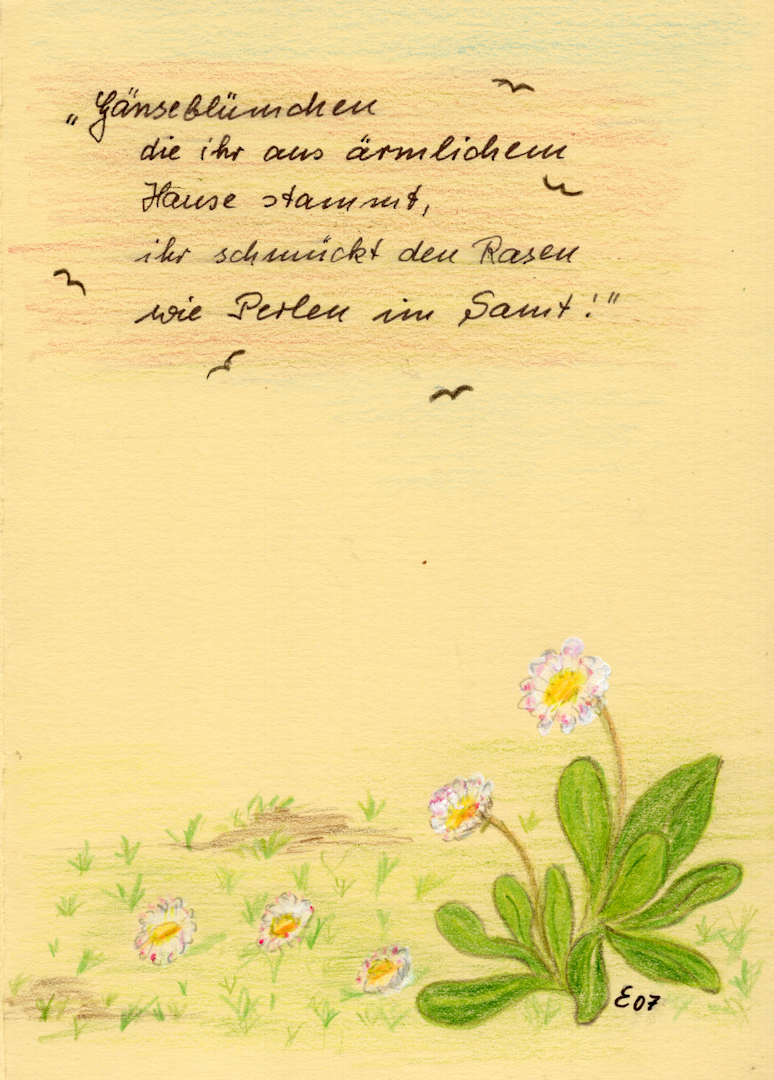 „Gänseblümchen
die ihr aus ärmlichem
Hause stammt,
ihr schmückt den Rasen
wie Perlen im Samt!"
E07